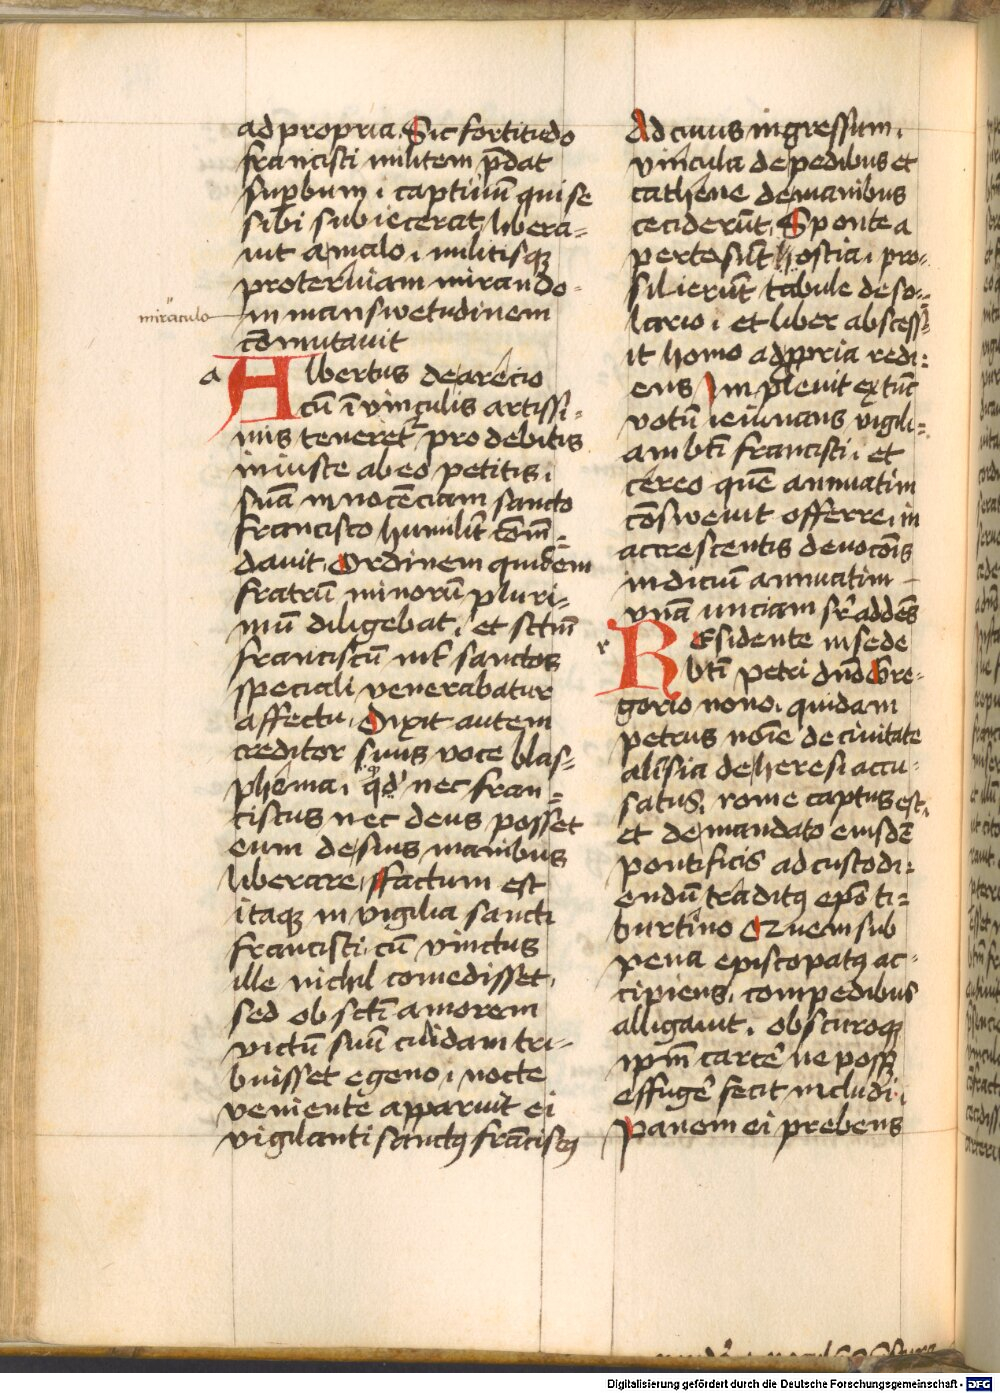 ad propria. Sic fortitudo
francisci militem p̄dat
sup̱bum ⁊ captiuū qui se
sibi subiecerat libera-
uit a malo ⁊ militisqꝫ
proteruiam mirando
in manswetudinem
miraculo
cōmutauit
a
Albertus de arecio
cū ī vinculis artissi-
mis teneret᷑ pro debitis
iniuste ab eo petitis ⁊
suā innocēciam sancto
Francisco humilit̄ cōm̄-
dauit. Ordinem quidem
fratrū minorū pluri-
mū diligebat, et sctm̄
franciscū int̄ sanctos
speciali venerabatur
affectu. Dixit autem
creditor suus voce blas-
phema ⁊ qd̕ nec fran-
ciscus nec deus posset
eum de suis manibus
liberare, ffactum est
itaqꝫ in vigilia sancti
francisci, cū vinctus
ille nichil comedisset,
sed ob sctī amorem
victū suū cuidam tri-
buisset egeno ⁊ nocte
veniente apparuit ei
vigilanti sanctꝰ frāciscꝰ
Ad cuius ingressum ⁊
vincula de pedibus et
cathene de manibus
ceciderūt, Sponte a
perta sūt hostia ⁊ pro-
silierūt tabule de so-
lario ⁊ et liber abscess-
it homo ad ꝓpria redi-
ens Impleuit ex tūc
votū ieiunans vigili-
am bt̄i francisci ⁊ et
cereo quē annuatim
cōsweuit offerre ⁊ in
accrescentis deuocōis
indiciū annuatim
vnā unciam sr̄ addēs
r
Residente in sede
bt̄i petri dn̄o Gre-
gorio nono. quidam
petrus noīe de ciuitate
alisia de heresi accu-
satus, rome captus est,
et de mandato eiusdē
pontificis ad custodi-
endū traditꝰ ep̄o ti-
burtino Quem sub
pena episcopatꝰ ac-
cipiens, compedibus
alligauit. obscuroqꝫ
ip̄m carcē ne possꝫ
effugē fecit includi ⁊
panem ei prebens